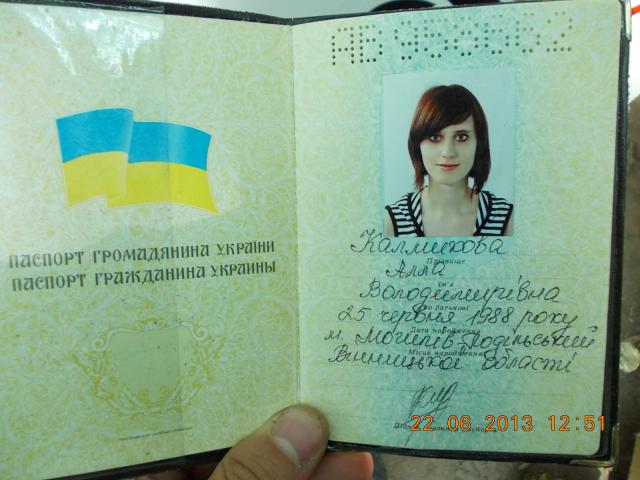 ПАСПОРТ ГРОМАДЯНИНА УКРАЇНИ
ПАСПОРТ ГРАЖДАНИНА УКРАИНЫ
АВ
Калмикова
Прізвище
Алла
Ім'я
Володимирівна
По батькові
25 червня 1988 року
Дата народження
м. Могилів-Подільський
Місце народження
Вінницької області
22.06.2013 12:51